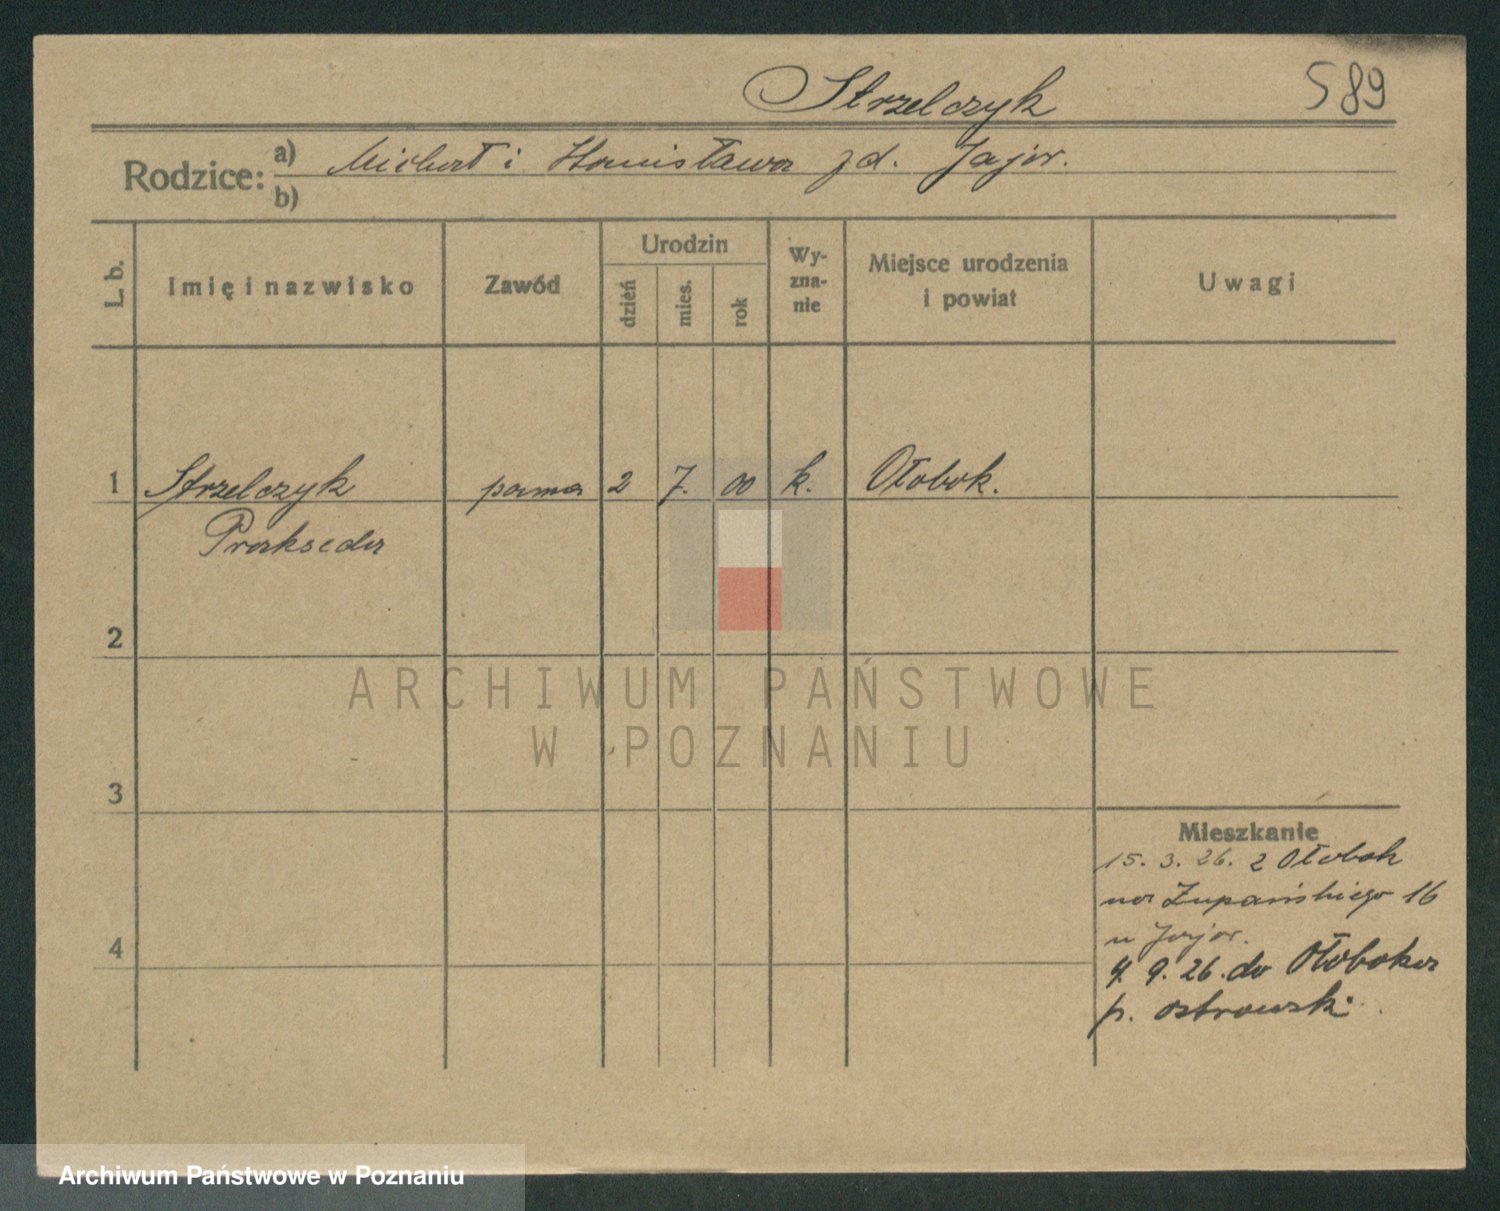 Strzelczyk 589
Rodzice: a) Michał i Stanisława zd. Jajor.
b)
L. b. Imię i nazwisko Zawód Urodzin dzień mies. rok Wyznanie Miejsce urodzenia i powiat Uwagi
1 Strzelczyk panna 2 7. 00 k. Ołobok.
Prakseda
2
ARCHIWUM PAŃSTWOWE
W POZNANIU
3
Mieszkanie
15. 3. 26. z Ołobok
na Żupańskiego 16
u Jajor.
4
9. 26. do Ołoboka
p. ostrowski
Archiwum Państwowe w Poznaniu